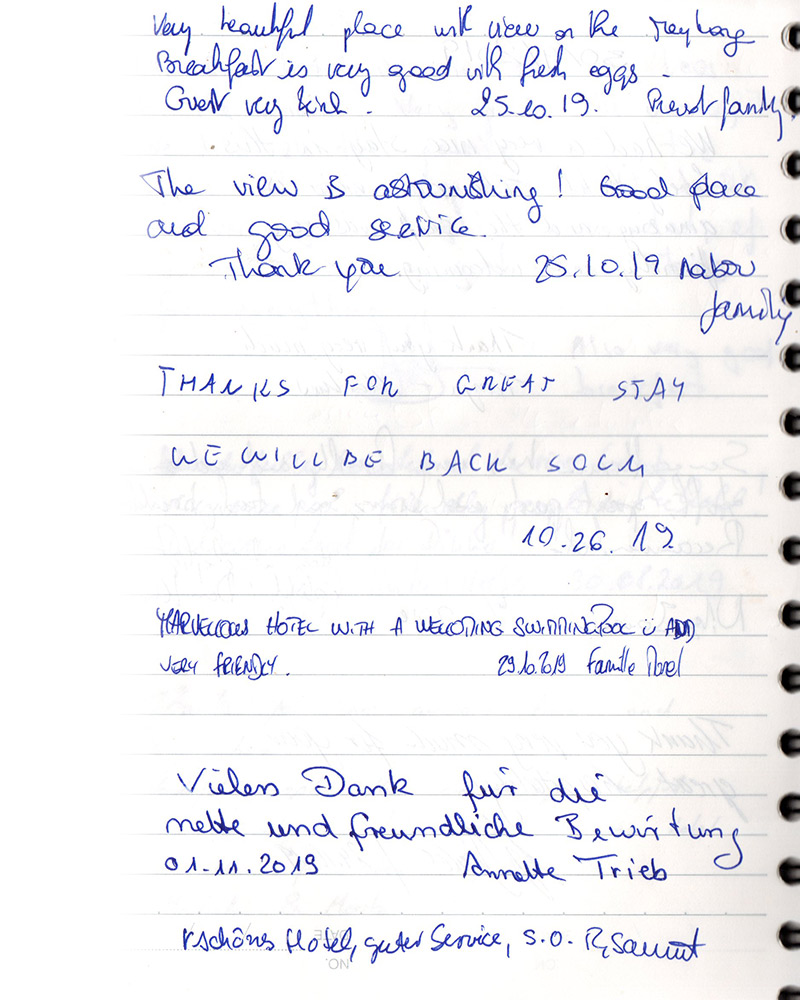 Very beautiful place with view on the
Breakfast is very good with fresh eggs -
Guest very kind. 25.10.19. family
The view is astounishing! Good place
and good service.
Thank you 25.10.19 Nabou
family
THANKS FOR GREAT STAY
WE WILL BE BACK SOON
10.26.19
HOTEL WITH A WELCOMING SWIMMINGPOOL ü AND
VERY FRIENDLY. 29.10.2019 Famille
Vielen Dank für die
nette und freundliche Bewirtung
01.11.2019 Annette Trieb
schönes Hotel, guter Service, S.O.